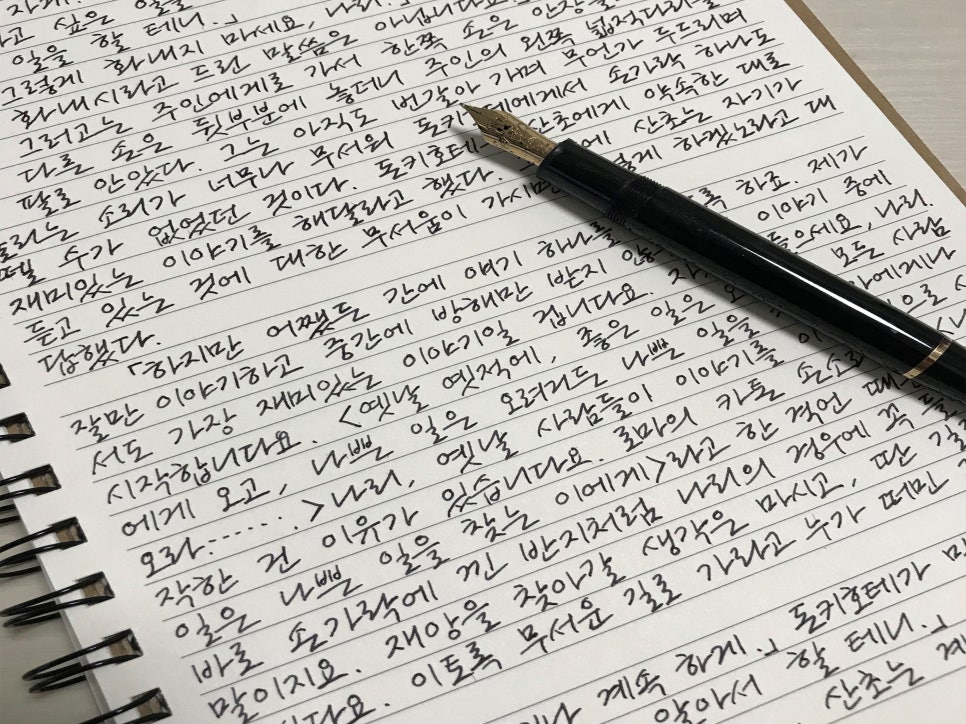 고 싶은 일을
일을 할 테니.」
그렇게 화내지 마세요, 나리.
화내시라고 드린 말씀은 아닙니다요.
그러고는 주인에게로 가서 한쪽 손은 안장
다른 손은 뒷부분에 놓더니 주인의 왼쪽 넓적다리를
팔로 안았다. 그는 아직도 번갈아 가며 무언가 두드리며
울리는 소리가 너무나 무서워 돈키호테에게서 손가락 하나도
뗄 수가 없었던 것이다. 돈키호테는 산초에게 약속한 대로
재미있는 이야기를 해달라고 했다. 산초는 자기가
듣고 있는 것에 대한 무서움이 가시면 하겠노라고 대
답했다.
「하지만 어쨌든 간에 얘기 하나를 하죠. 제가
잘만 이야기하고 중간에 방해만 받지 이야기 중에
서도 가장 재미있는 이야기일 겁니다요. 들으세요, 나리.
시작합니다요. <옛날 옛적에, 좋은 일은 모든 사람
에게 오고, 나쁜 일은 오려거든 나쁜 일을
오라......> 나리, 옛날 사람들이 이야기를
작한 건 이유가 있습니다요. 로마의 카톤 손소리
일은 나쁜 일을 찾는 이에게>라고 한 격언
바로 손가락에 낀 반지처럼 나리의 경우에 꼭
말이지요. 재앙을 찾아갈 생각은 마시고, 딴 길
이토록 무서운 길로 가라고 누가 떠민
계속 하게.」 돈키호테가
알아서 할 테니.」
산초는